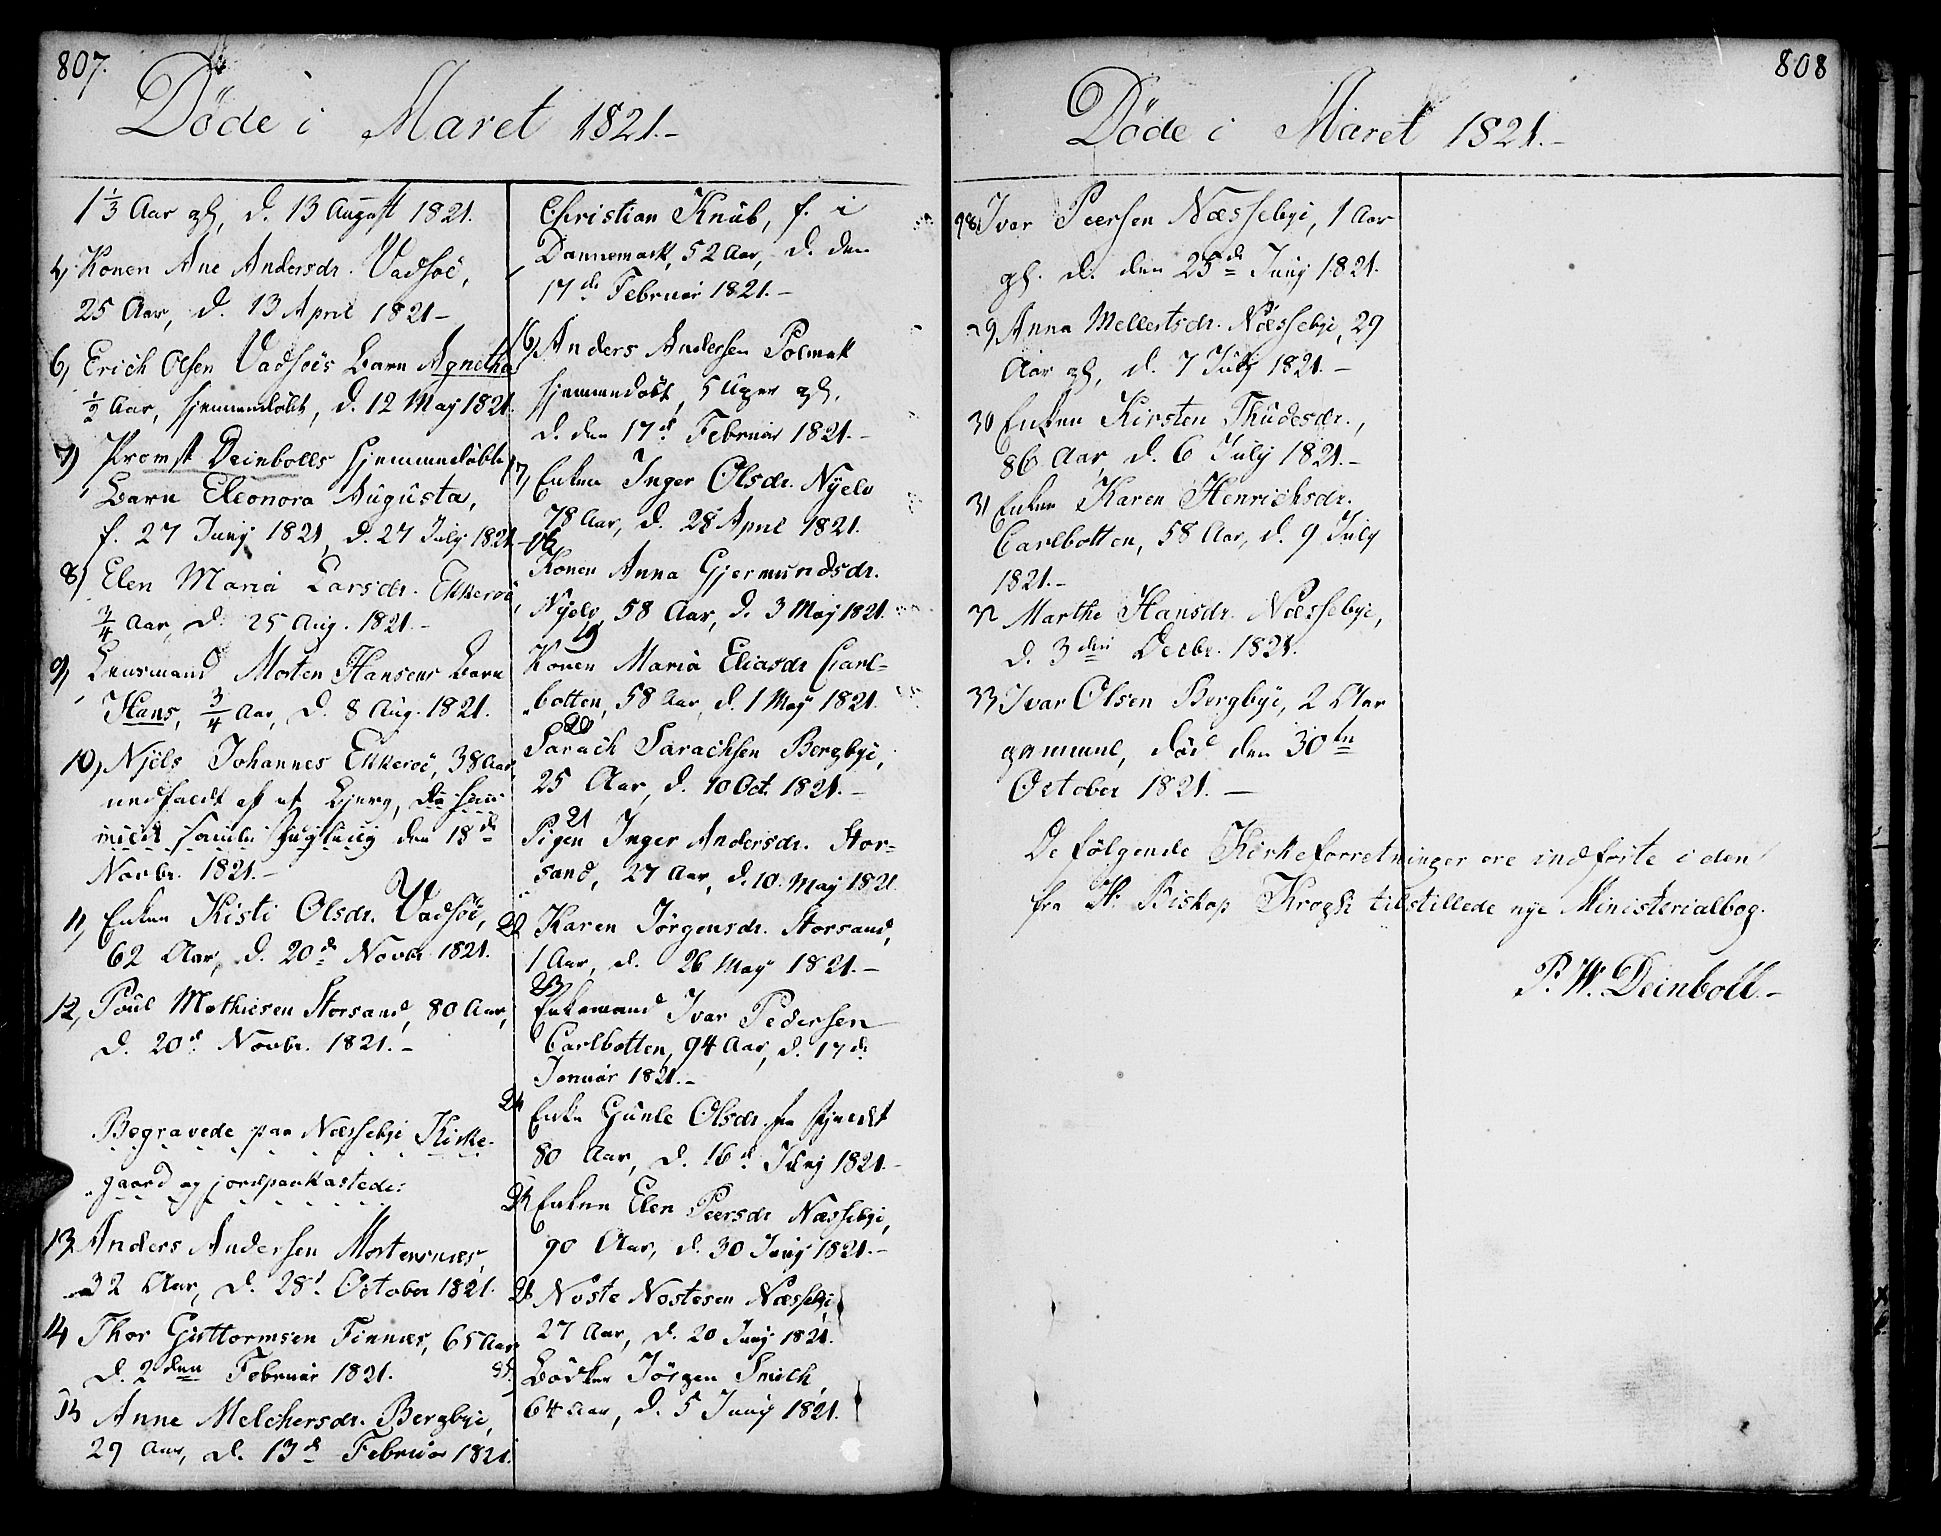 807.
Døde i Maret 1821.-
1 1/3 Aar gl, d. 13 August 1821.
4, Konen Ane Andersdr. Vadsöe,
25 Aar, d. 13 April 1821-
6, Erich Olsen Vadsöes Barn Agnetha
1/2 Aar, hjemmedöbt, d. 12 May 1821.
7) Provst Deinbolls hjemmedöbte
Barn Eleonora Augusta,
f. 27 Juny 1821, d. 27 July 1821-
8) Elen Maria Larsdr. Ekkeröe,
3/4 Aar, d. 25 Aug. 1821.-
9, Lensmand Morten Hansens Barn
Hans, 3/4 Aar, d. 8 Aug. 1821.
10, Niels Johannes Ekkeröe, 38 Aar,
nedfaldt af et Bjerg, da han
vilde samle Fugleæg den 18d
Novbr. 1821.-
11, Enken Kisti Olsdr. Vadsöe,
62 Aar, d. 20d Novbr 1821.
12, Poul Mathiesen Storsand, 80 Aar,
d. 20d Novbr. 1821.-
Begravede paa Næssebye Kirke-
gaard og jordpaakastede:
13, Anders Andersen Mortensnæs,
32 Aar, d. 28d October 1821.
14 Thor Guttormsen Finnæs, 65 Aar
d. 2den Februar 1821.
15 Anne Melchersdr. Bergbye,
29 Aar, d. 13d Februar 1821.
Christian Knub, f. i
Dannemark, 52 Aar, d. den
17d Februar 1821.-
16, Anders Andersen Polmak
hjemmedöbt, 5 Uger gl,
d. den 17d Februar 1821.-
17, Enken Inger Olsdr. Nyelv
78 Aar, d. 28 April 1821.
18,
Konen Anna Gjermundsdr.
Nyelv, 58 Aar, d. 3 May 1821.
19
Konen Maria Eliasdr Carl-
botten, 58 Aar, d. 1 May 1821.
20
Sarach Sarachsen Bergbye,
25 Aar, d. 10 Oct. 1821.-
21
Pigen Inger Andersdr. Stor-
sand, 27 Aar, d. 10. May 1821.
22 Karen Jörgensdr. Storsand,
1 Aar, d. 26 May 1821.-
23
Enkemand Ivar Pedersen
Carlbotten, 94 Aar, d. 17d
Januar 1821.-
24 Enke Gunle Olsdr fra Fjeldet
80 Aar, d. 16d Juny 1821.-
25 Enken Elen Peersdr Næssebye,
90 Aar, d. 30 Juny 1821.-
26 Noste Nostesen Næssebye
27 Aar, d. 20 Juny 1821.
Bödker Jörgen Smith,
64 Aar, d. 5 Juny 1821.
808
Døde i Maret 1821.-
28, Ivar Peersen Næssebye, 1 Aar
gl. d. den 25de Juny 1821.
29 Anna Mellertsdr. Næssebye, 29
Aar gl, d. 7 July 1821.-
30 Enken Kirsten Thudesdr.,
86 Aar, d. 6 July 1821.-
31 Enken Karen Henrichsdr.
Carlbotten, 58 Aar, d. 9 July
1821.-
32 Marthe Hansdr. Næssebye,
d. 3die Decbr. 1821.
33 Ivar Olsen Bergbye, 2 Aar
gammel, död den 30te
October 1821.-
De følgende Kirkeforretninger ere indførte i den
fra Hr. Biskop Krogh tilstillede nye Ministerialbog.
P. W. Deinboll.-